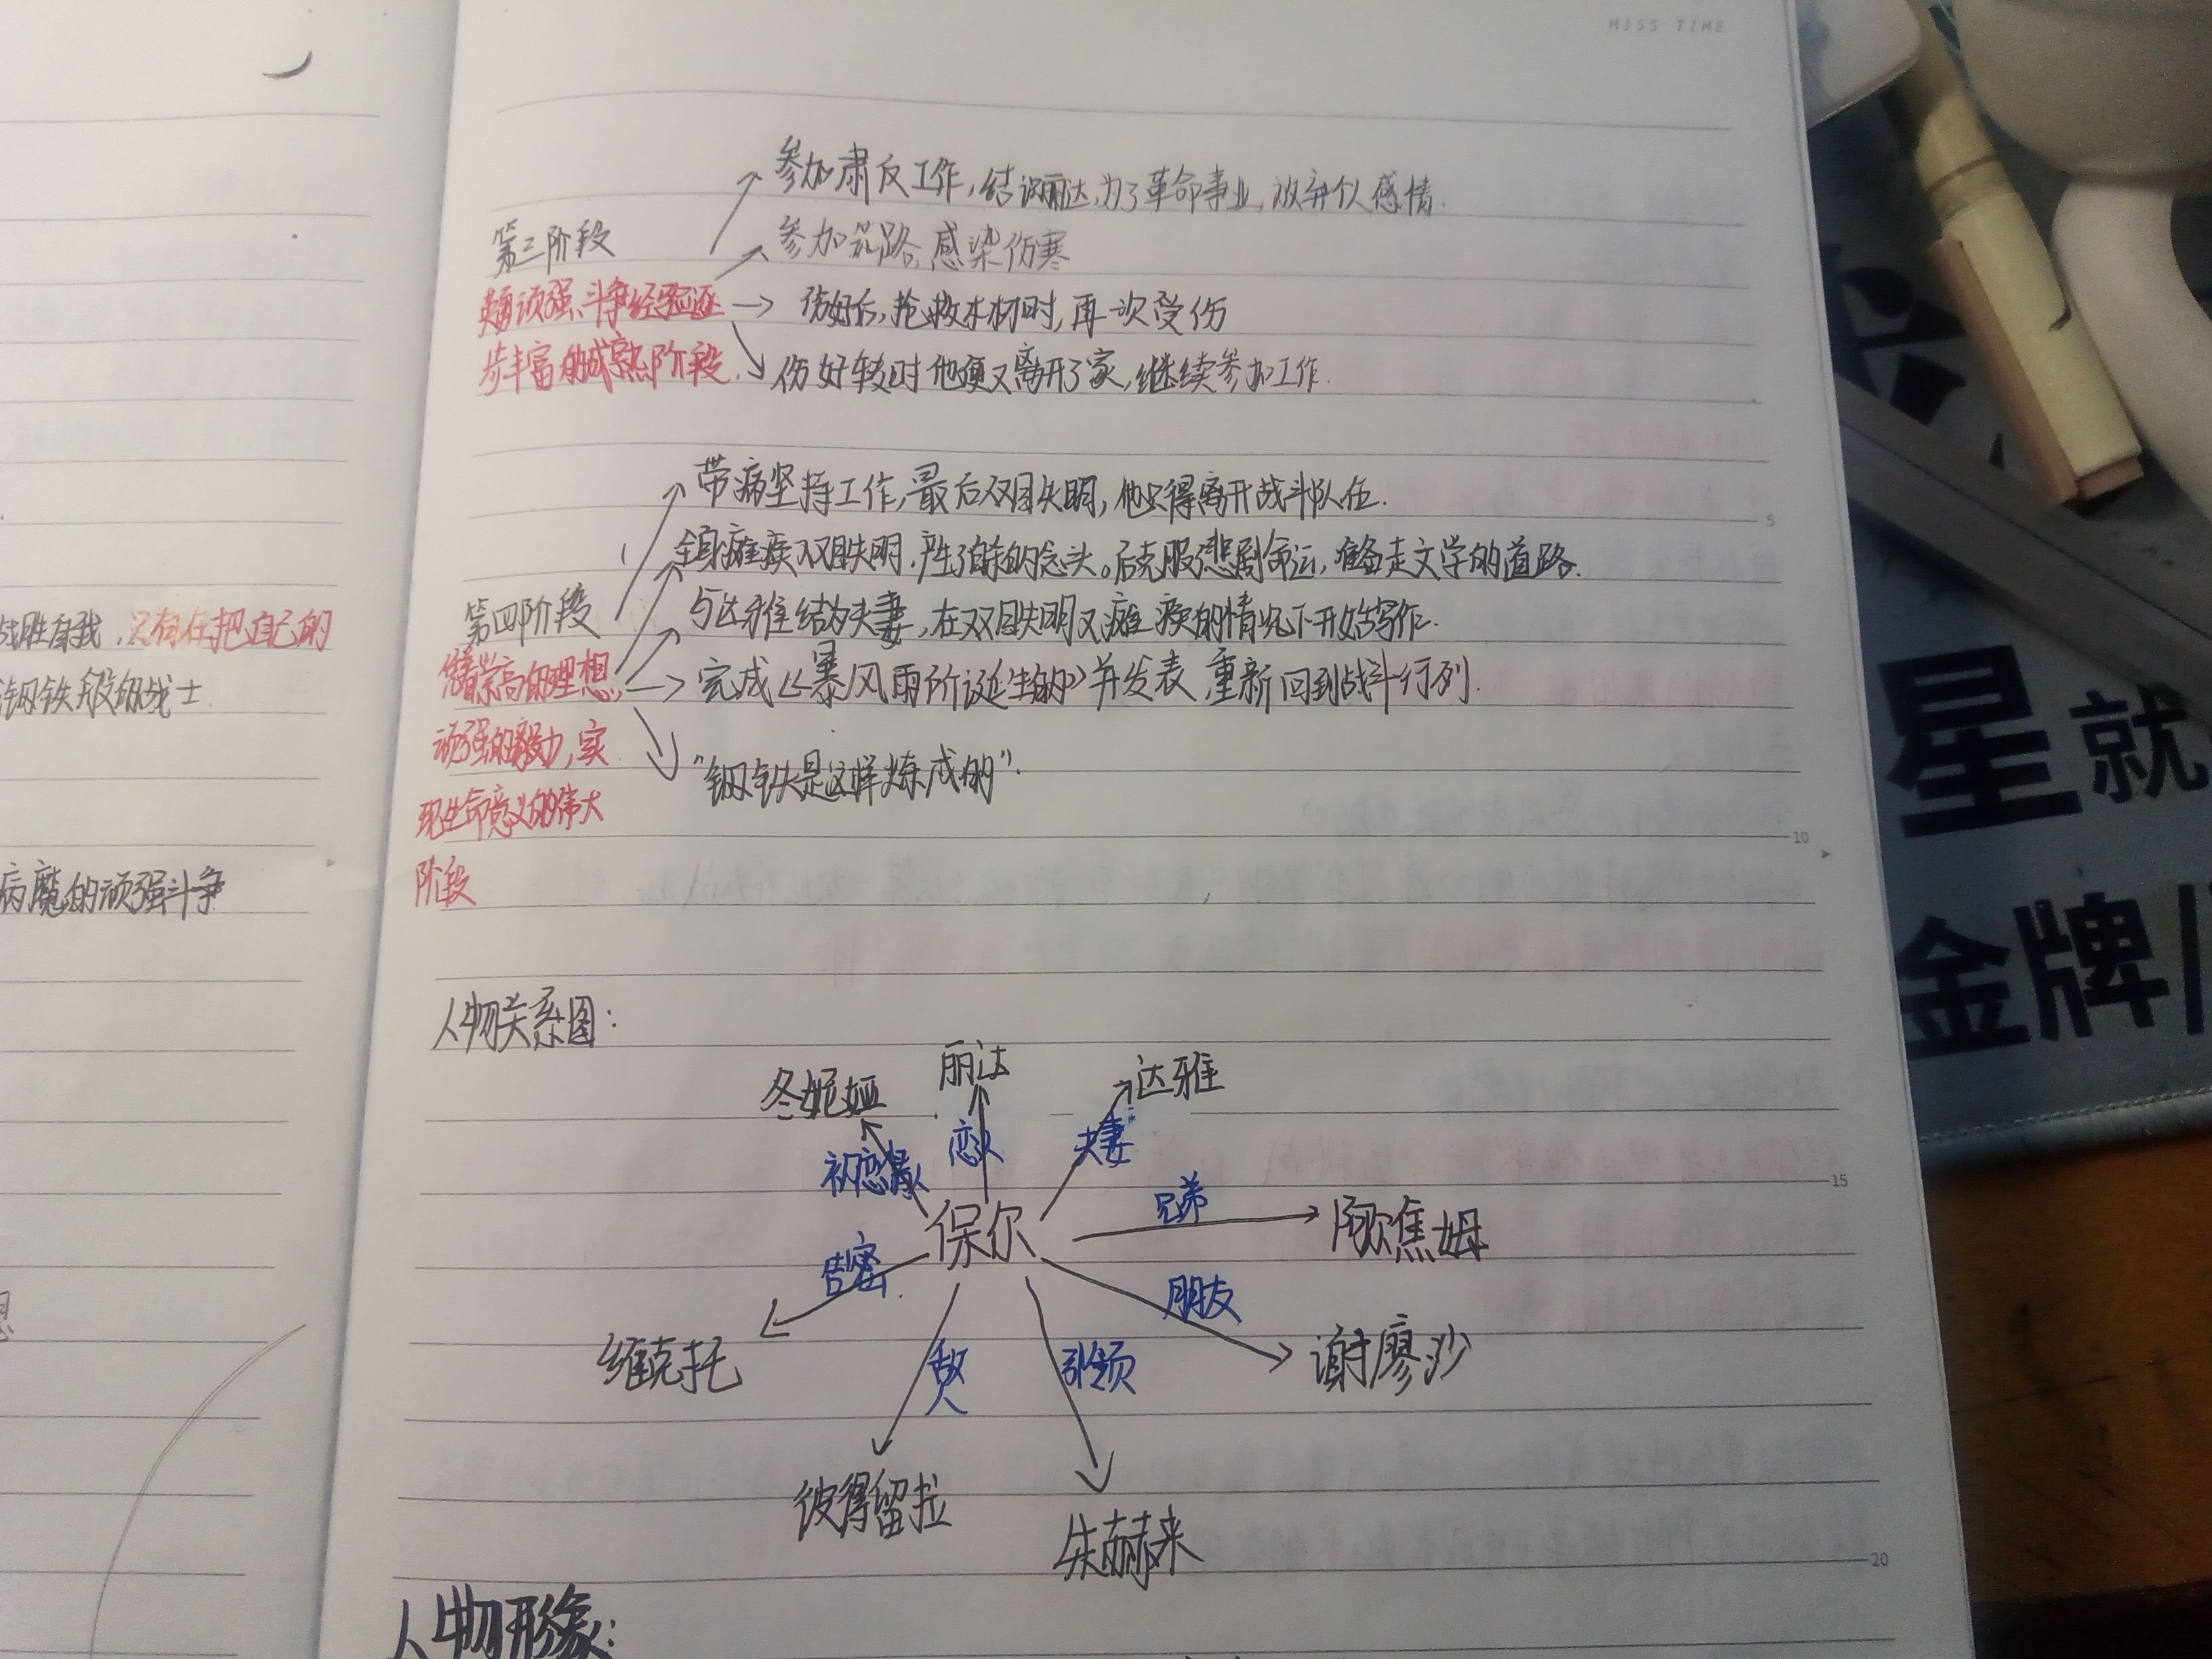 MISS TIME
参加肃反工作,结识丽达,为了革命事业,放弃个人感情.
第三阶段
参加筑路,感染伤寒
英勇顽强、斗争经验逐
伤好后,抢救木材时,再一次受伤
步丰富的成熟阶段.
伤好转时他便又离开了家,继续参加工作.
带病坚持工作,最后双目失明,他只得离开战斗队伍.
5
全身瘫痪双目失明,产生了自杀的念头。后克服悲剧命运,准备走文学的道路.
第四阶段
与达雅结为夫妻,在双目失明又瘫痪的情况下开始写作.
崇高的理想,
完成《暴风雨所诞生的》并发表,重新回到战斗行列.
顽强的毅力,实
"钢铁是这样炼成的".
现生命意义的伟大
10
阶段
战胜自我,只有在把自己的
钢铁般的战士.
病魔的顽强斗争
人物关系图:
冬妮娅
丽达
达雅
初恋
恋人
夫妻
15
保尔
兄弟
阿尔焦姆
告密.
朋友
维克托
敌人
引领
谢廖沙
彼得留拉
朱赫来
20
人物形象:
星就
金牌